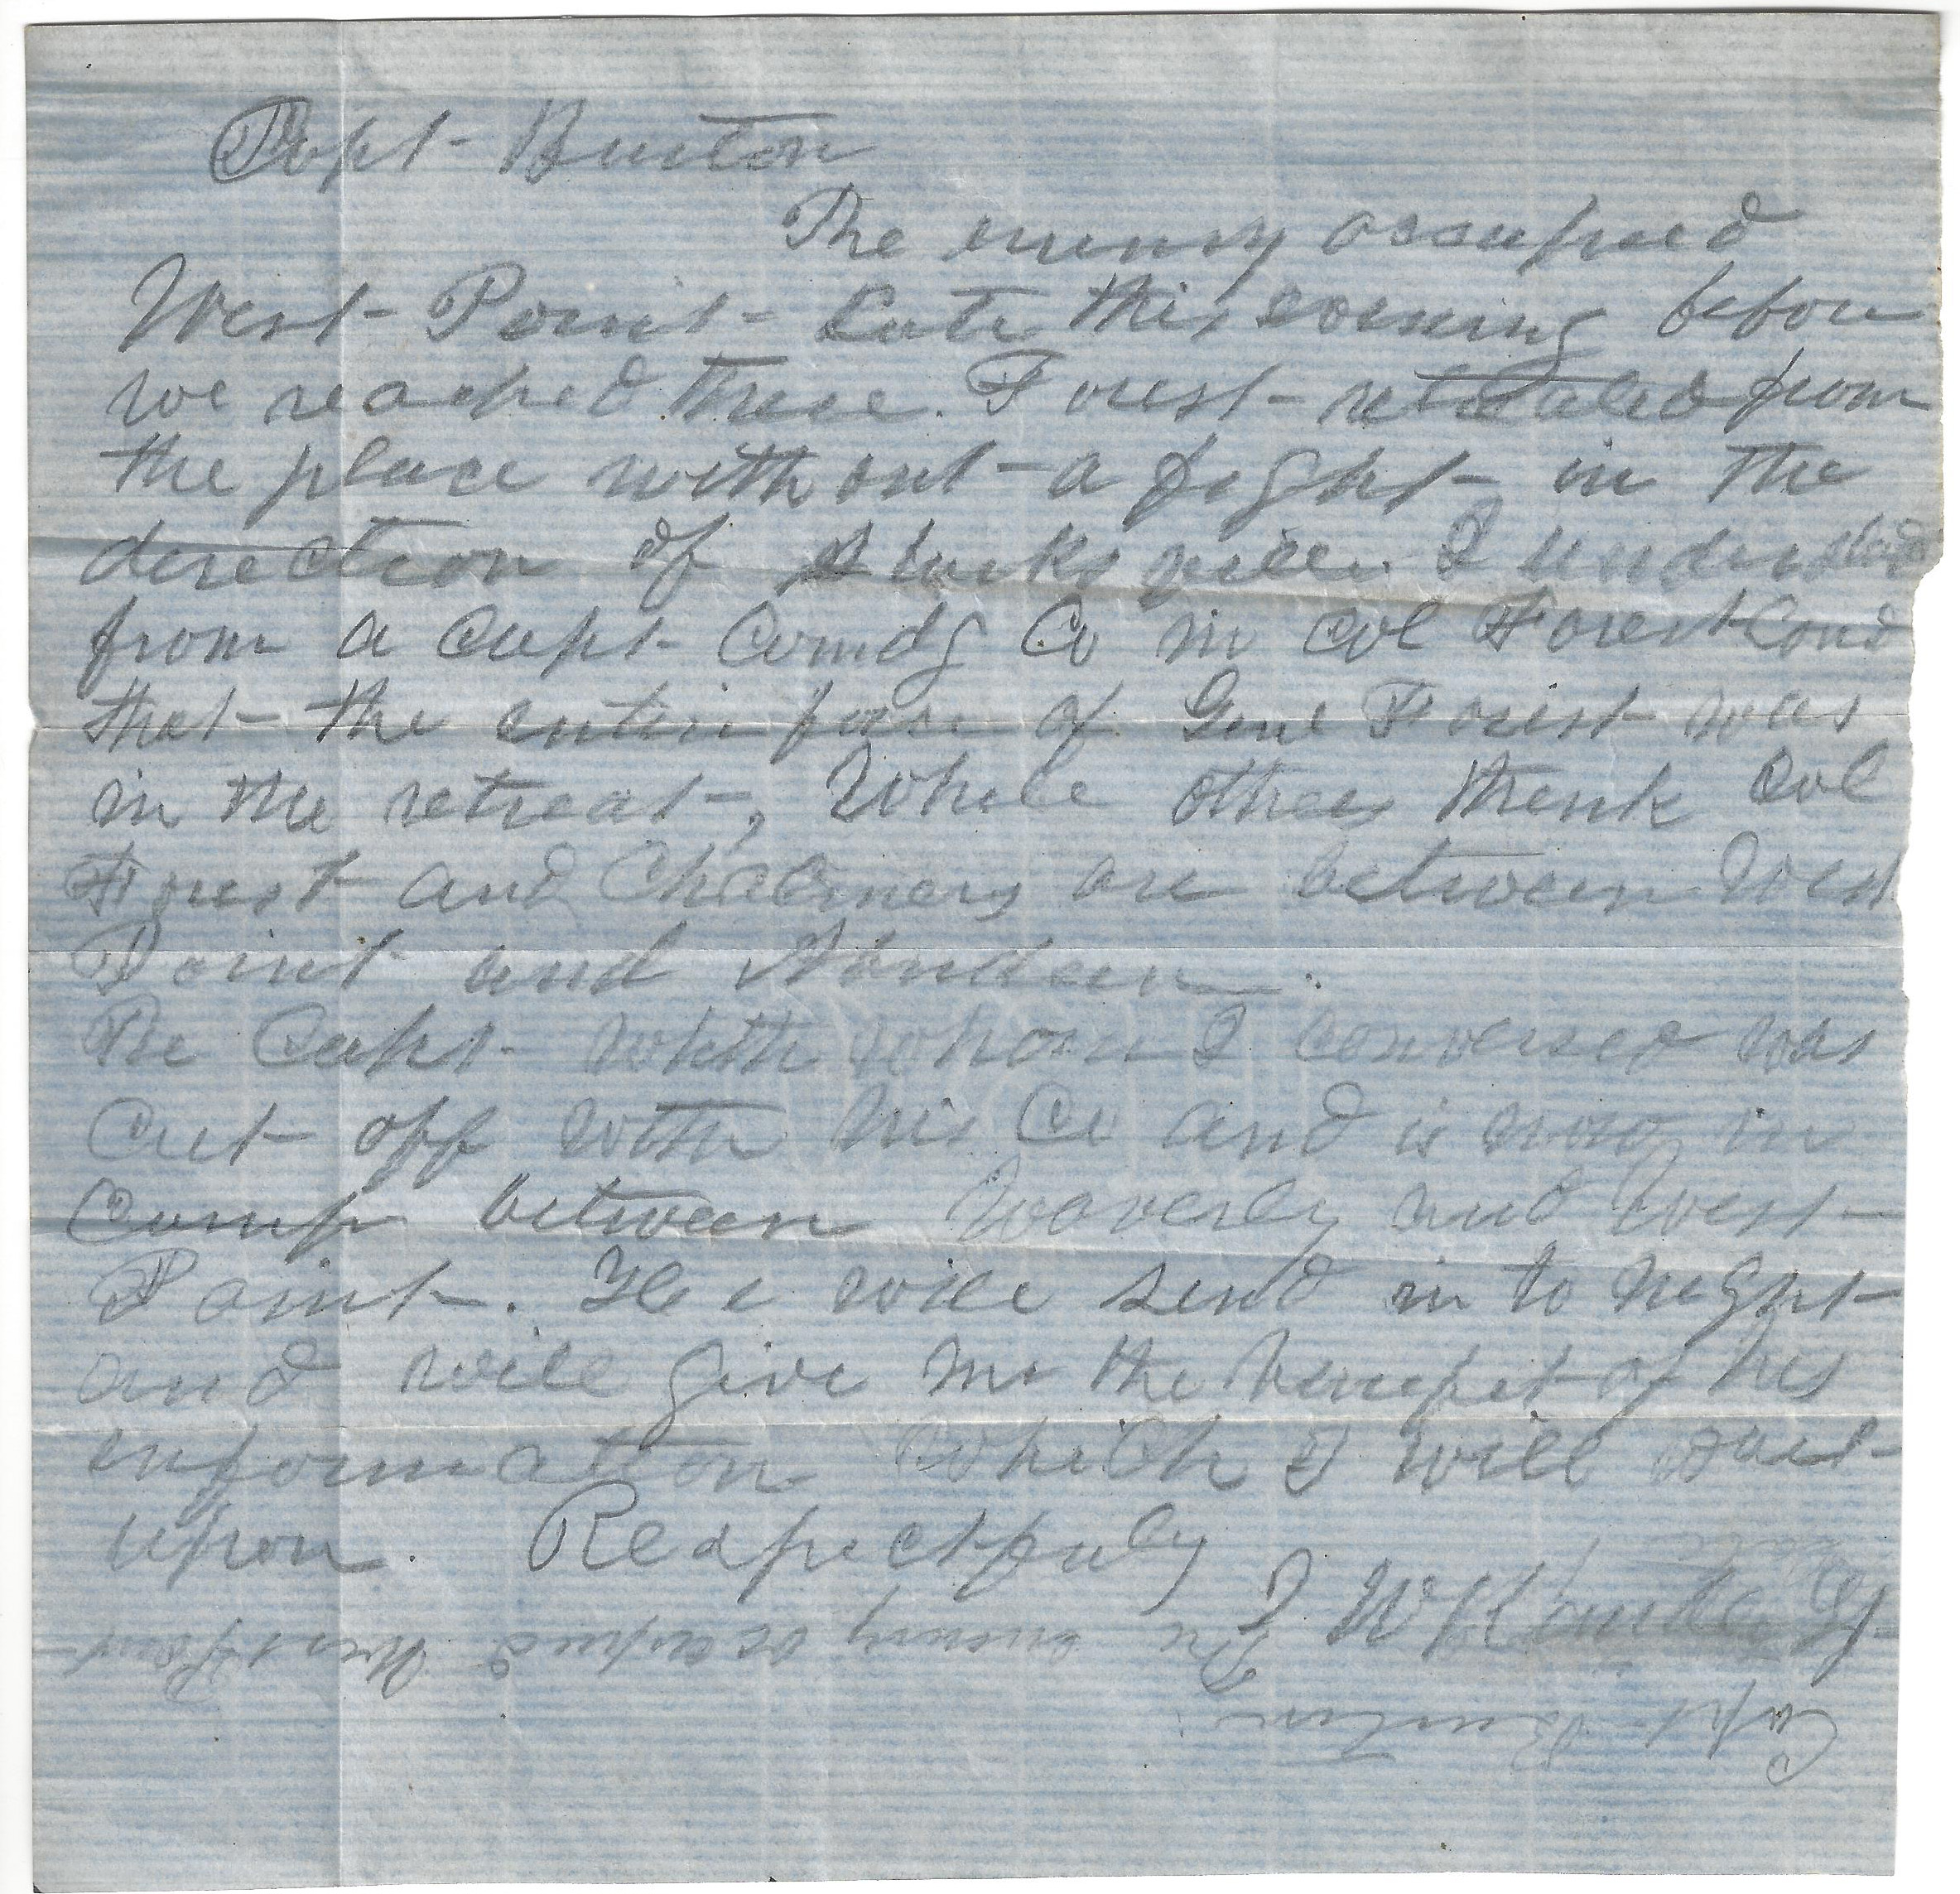 Capt- Buiton
The enemy occupied
West- Point- Late this evening before
we reached there. Forest- retreated from
the place without- a fight- in the
direction of Starksville. I understand
from a Capt- Comdg Co in Col Forest Comd
that- the entire force of Genl Forest- was
in the retreat-, While others think Col
Forest and Chalmers are between West
Point and Aberdeen.
The Capt- with whom I conversed was
Cut- off with his Co and is now in
Camp between Waverly and West-
Point-. He will send in to night-
and will give me the benefit- of his
information which I will act-
upon. Respectfuly
J W
The enemy occupied West- Point-
Capt- Buiton